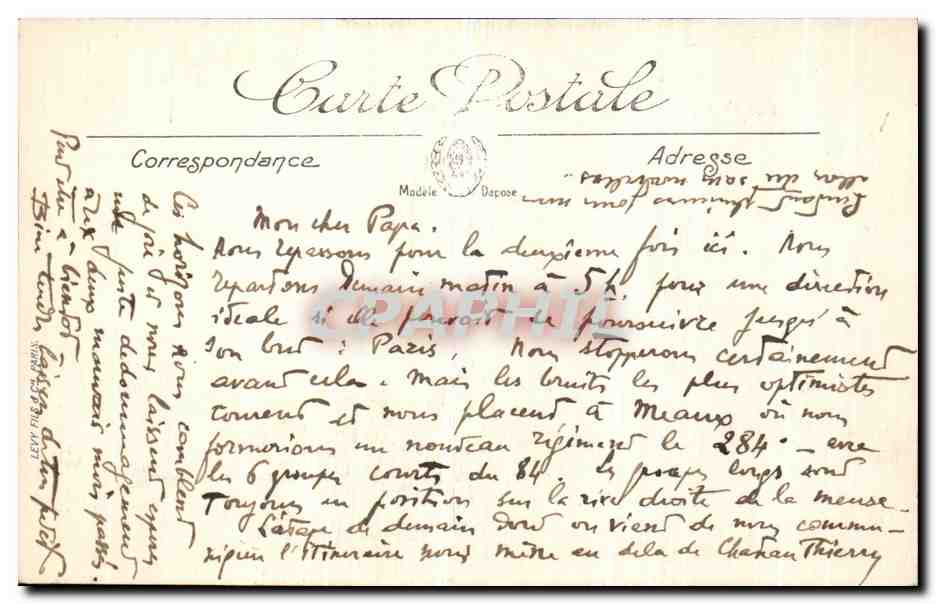 Carte Postale
Correspondance
Adresse
Modèle Déposé
Mon cher Papa.
Nous repassons pour la deuxième fois ici. Nous
repartons Demain matin à 5h. pour une direction
ideale si elle pouvait se poursuivre jusqu'à
son bout : Paris, Nous stopperons certainement
avant cela. Mais les bruits les plus optimistes
courent et nous placent à Meaux où nous
formerions un nouveau régiment le 284e - avec
les 6 groupes courts du 84. Les groupes longs sont
Toujours en position sur la rive droite de la meuse.
L'étape de demain dont on vient de nous commu-
niquer l'itinéraire nous mène au dela de Chateau Thierry
Ces horizons nous comblent
de joie et nous laissent espérer
une juste dedommagement
aux deux mauvais mois passés.
Peut être à bientôt
Bien tendres baisers de ton petit
LEVY FILS & Cie PARIS
CPARAMA